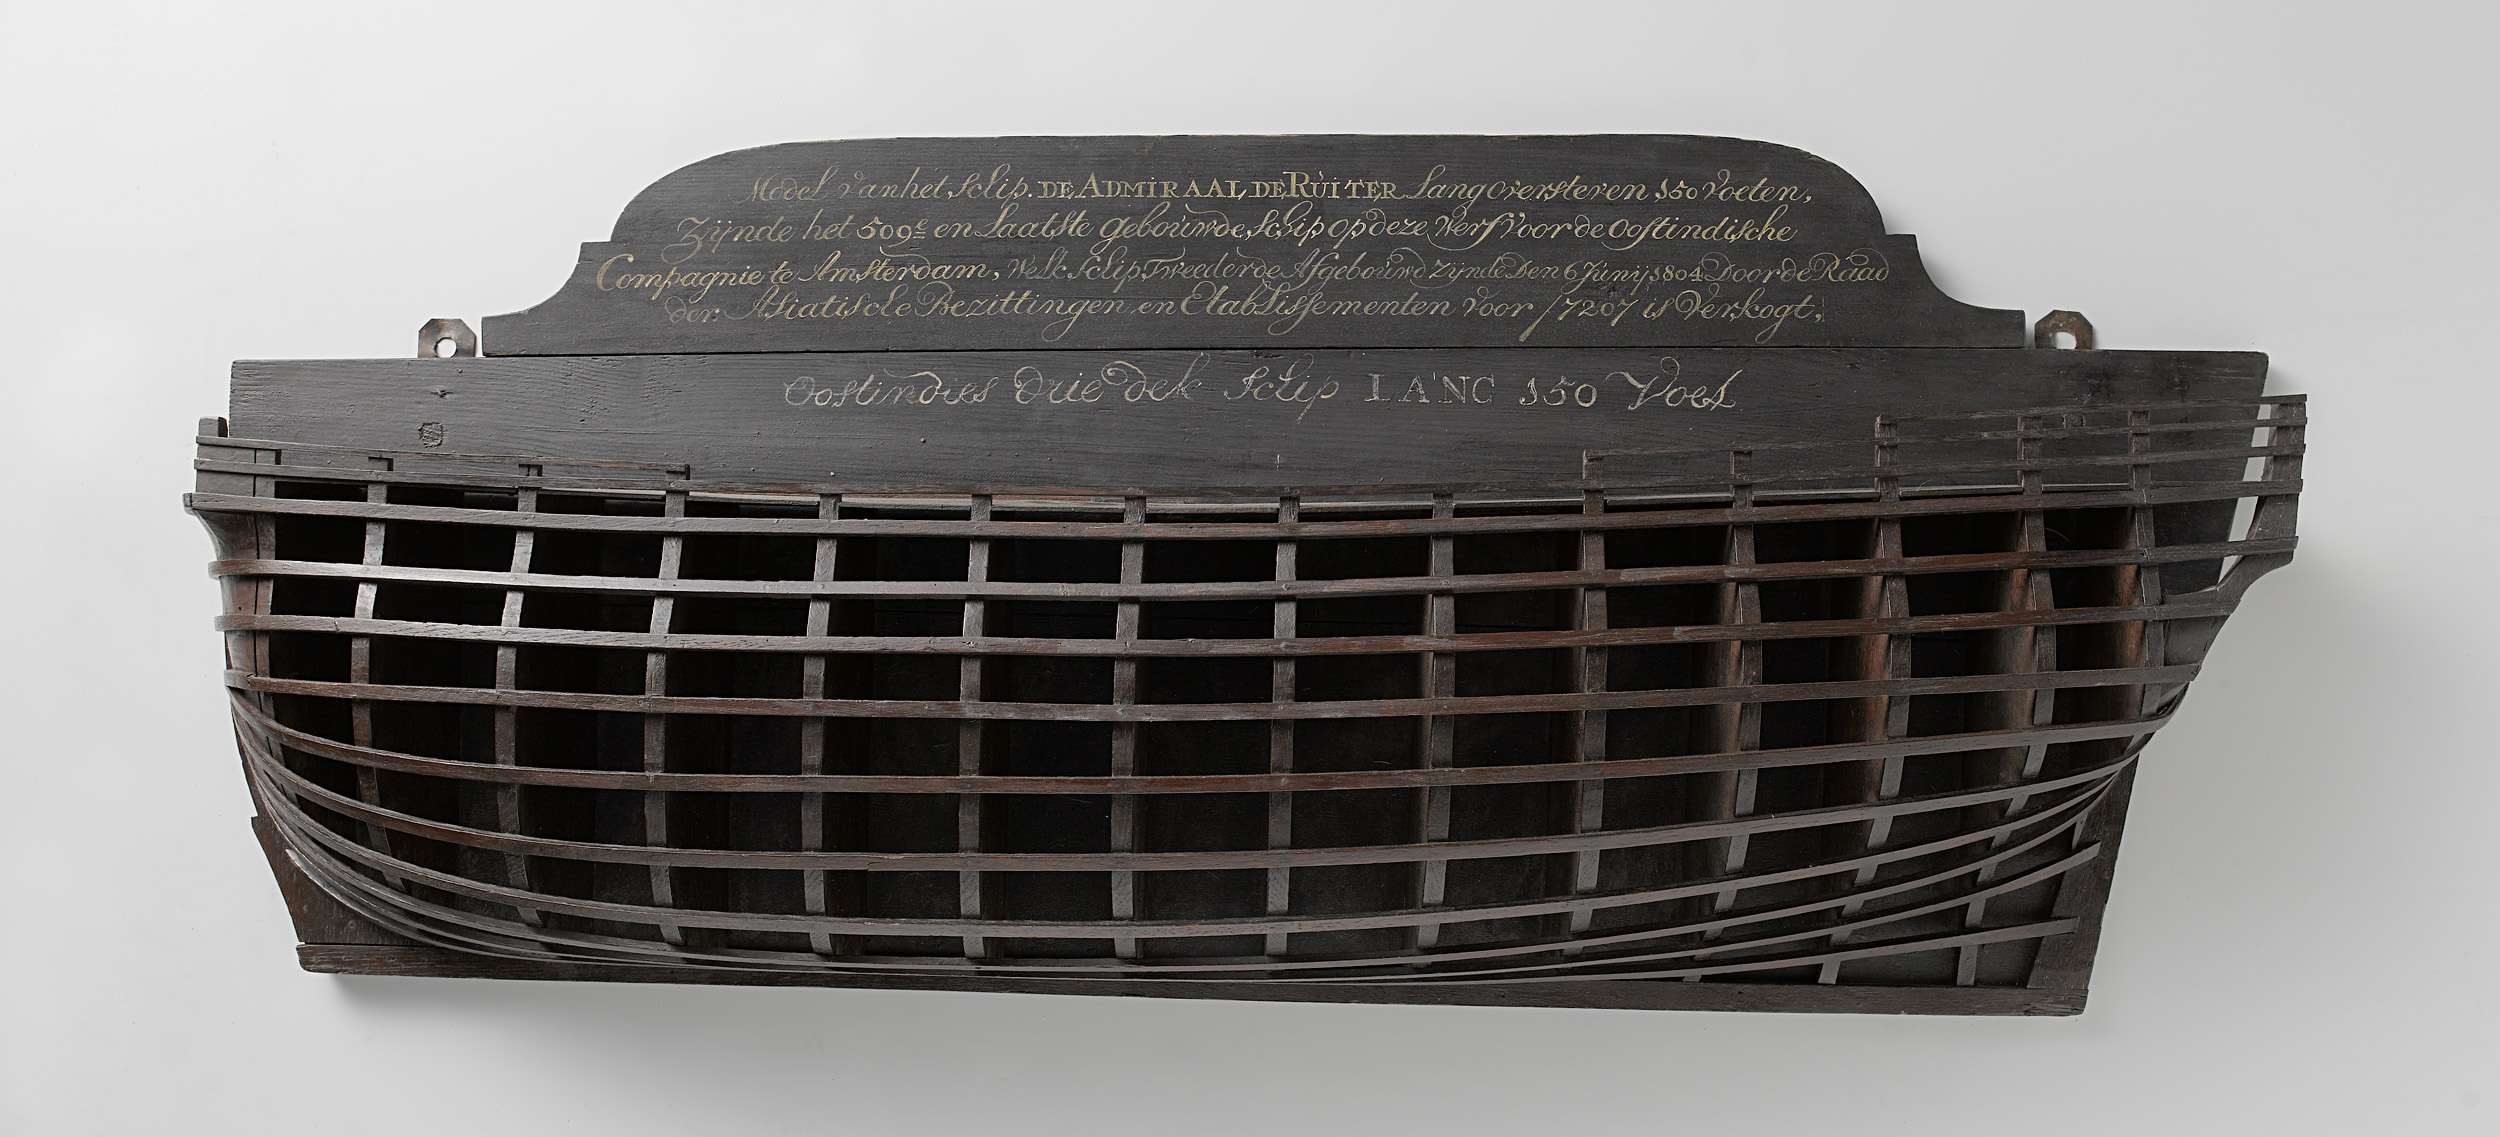 Model van het Schip. DE ADMIRAAL DE RUITER Lang over steven 150 voeten,
Zijnde het 509e en Laatste gebouwde, schip op deze Werf Voor de Oostindische
Compagnie te Amsterdam, welk schip, Tweederde Afgebouwd zijnde Den 6 Junij, 1804 Door de Raad
der. Asiatische Bezittingen en Etablissementen voor ƒ7207 is verkogt,
Oostindies drie dek Schip LANG 150 Voet